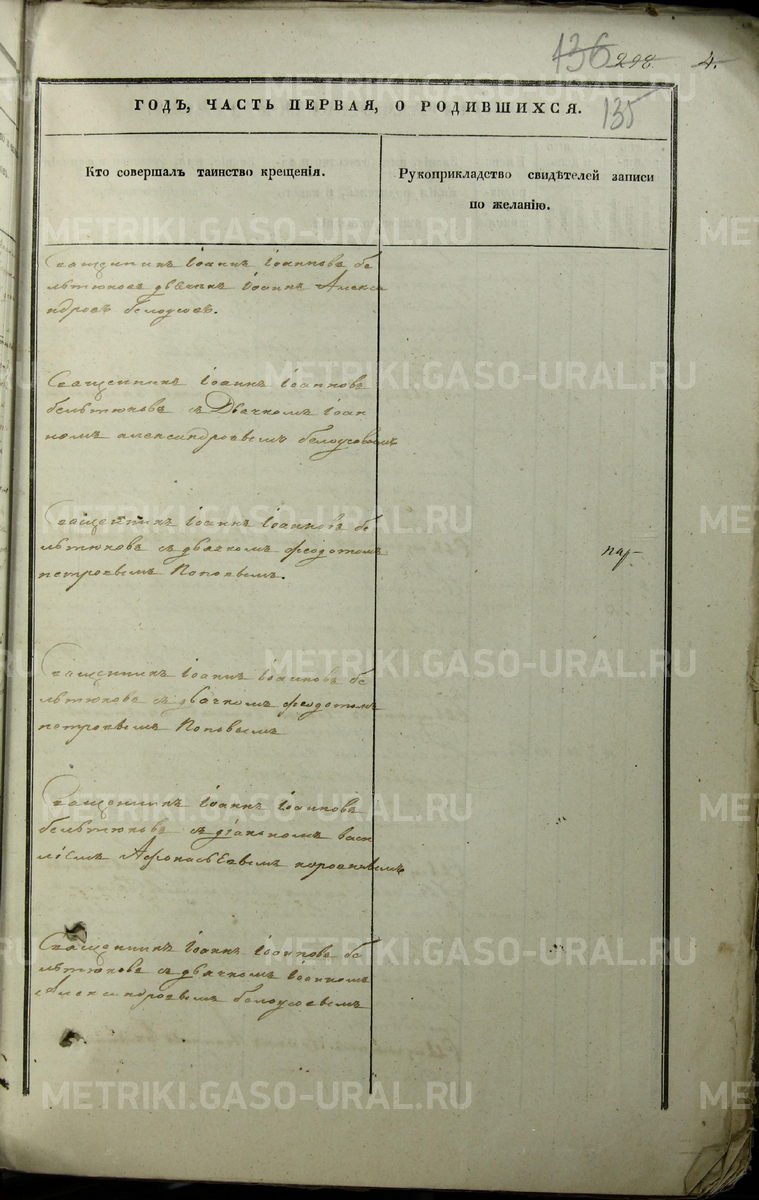 136 298 4.
135
ГОДЪ, ЧАСТЬ ПЕРВАЯ, О РОДИВШИХСЯ.
Кто совершалъ таинство крещенія.
Рукоприкладство свидѣтелей записи
по желанію.
Священникъ Іоаннъ Іоанновъ бе
льтюковъ дьячькъ Іоаннъ Алекса
ндровъ белоусовъ.
Священникъ Іоаннъ Іоанновъ
бельтюковъ съ Дьячкомъ Іоан
номъ александровымъ белоусовымъ
Священникъ Іоаннъ Іоанновъ бе
льтюковъ съ дьячкомъ феодотомъ
петровымъ Поповымъ.
пар
Священникъ Іоаннъ Іоанновъ бе
льтюковъ съ дьячкомъ феодотомъ
петровымъ Поповымъ
Священникъ Іоаннъ Іоанновъ
бельтюковъ съ діакономъ васи
ліемъ Афонасьевымъ
Священникъ Іоаннъ Іоанновъ бе
льтюковъ съ дьячкомъ Іоанномъ
Александровымъ белоусовымъ
METRIKI.GASO-URAL.RU